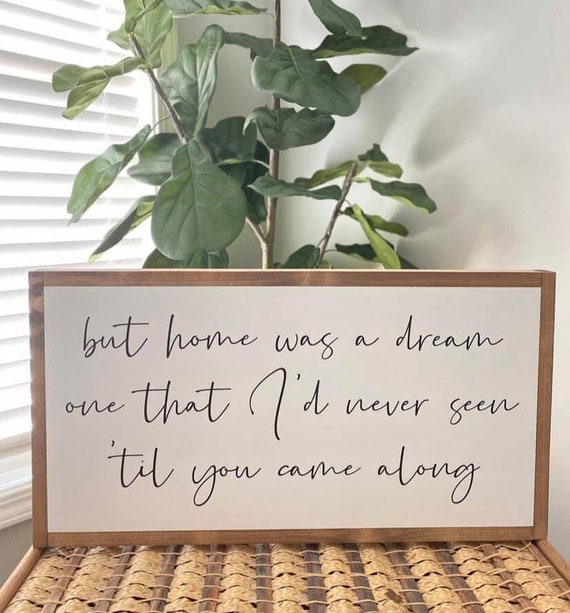 but home was a dream
one that I'd never seen
'til you came along